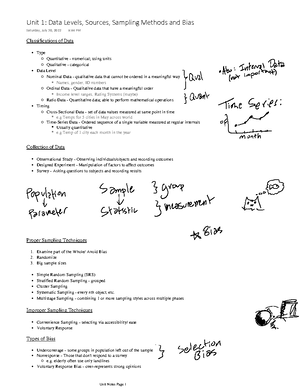 Unit 1: Data Levels, Sources, Sampling Methods and Bias
Classifications of Data
Type
Quantitative - numerical, using units
Qualitative - categorical
Data Level
Nominal Data - qualitative data that cannot be ordered in a meaningful way
Names, gender, ID numbers
} Qual
Ordinal Data - Qualitative data that have a meaningful order
Ratio Data - Quantitative data, able to perform mathematical operations
} Quant
Timing
Cross-Sectional Data - set of data values measured at same point in time
Time-Series Data - Ordered sequence of a single variable measured at regular intervals
Usually quantitative
e.g Temp of 1 city each month in the year
Also: Interval Data
(not important)
Time Series:
month
Collection of Data
Observational Study - Observing individuals/objects and recording outcomes
Designed Experiment - Manipulation of factors to affect outcomes
Survey - Asking questions to subjects and recording results
Population Sample } group
Parameter Statistic } measurement
Bias
Proper Sampling Techniques
1. Examine part of the Whole/ Avoid Bias
2. Randomize
3. Big sample sizes
Simple Random Sampling (SRS)
Stratified Random Sampling - grouped
Cluster Sampling
Systematic Sampling - every nth object etc.
Multistage Sampling - combining 1 or more sampling styles across multiple phases
Improper Sampling Techniques
Convenience Sampling - selecting via accessibility/ ease
Voluntary Response
Types of Bias
Undercoverage - some groups in population left out of the sample
Nonresponse - Those that don't respond to a survey
e.g. elderly often use only landlines
Voluntary Response Bias - over-represents strong opinions
} Selection
Bias
Unit Notes Page 1